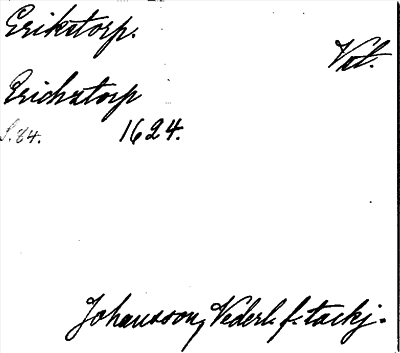 Erikstorp.
Vst.
Erichstorp
S.84. 1624.
Johansson, Nederl. f. tackj.